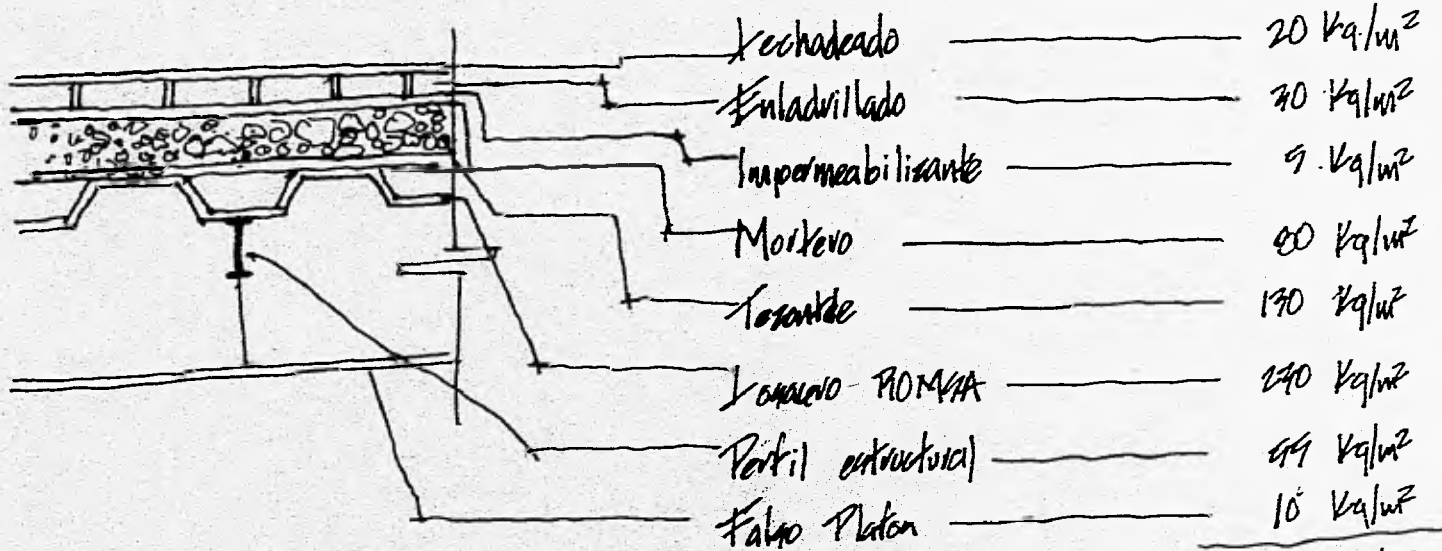 Lechadeado 20 Kg/m²
Enladrillado 30 Kg/m²
Impermeabilizante 5 Kg/m²
Mortero 80 Kg/m²
Tezontle 130 Kg/m²
Losacero ROMSA 230 Kg/m²
Perfil estructural 55 Kg/m²
Falso Plafon 10 Kg/m²